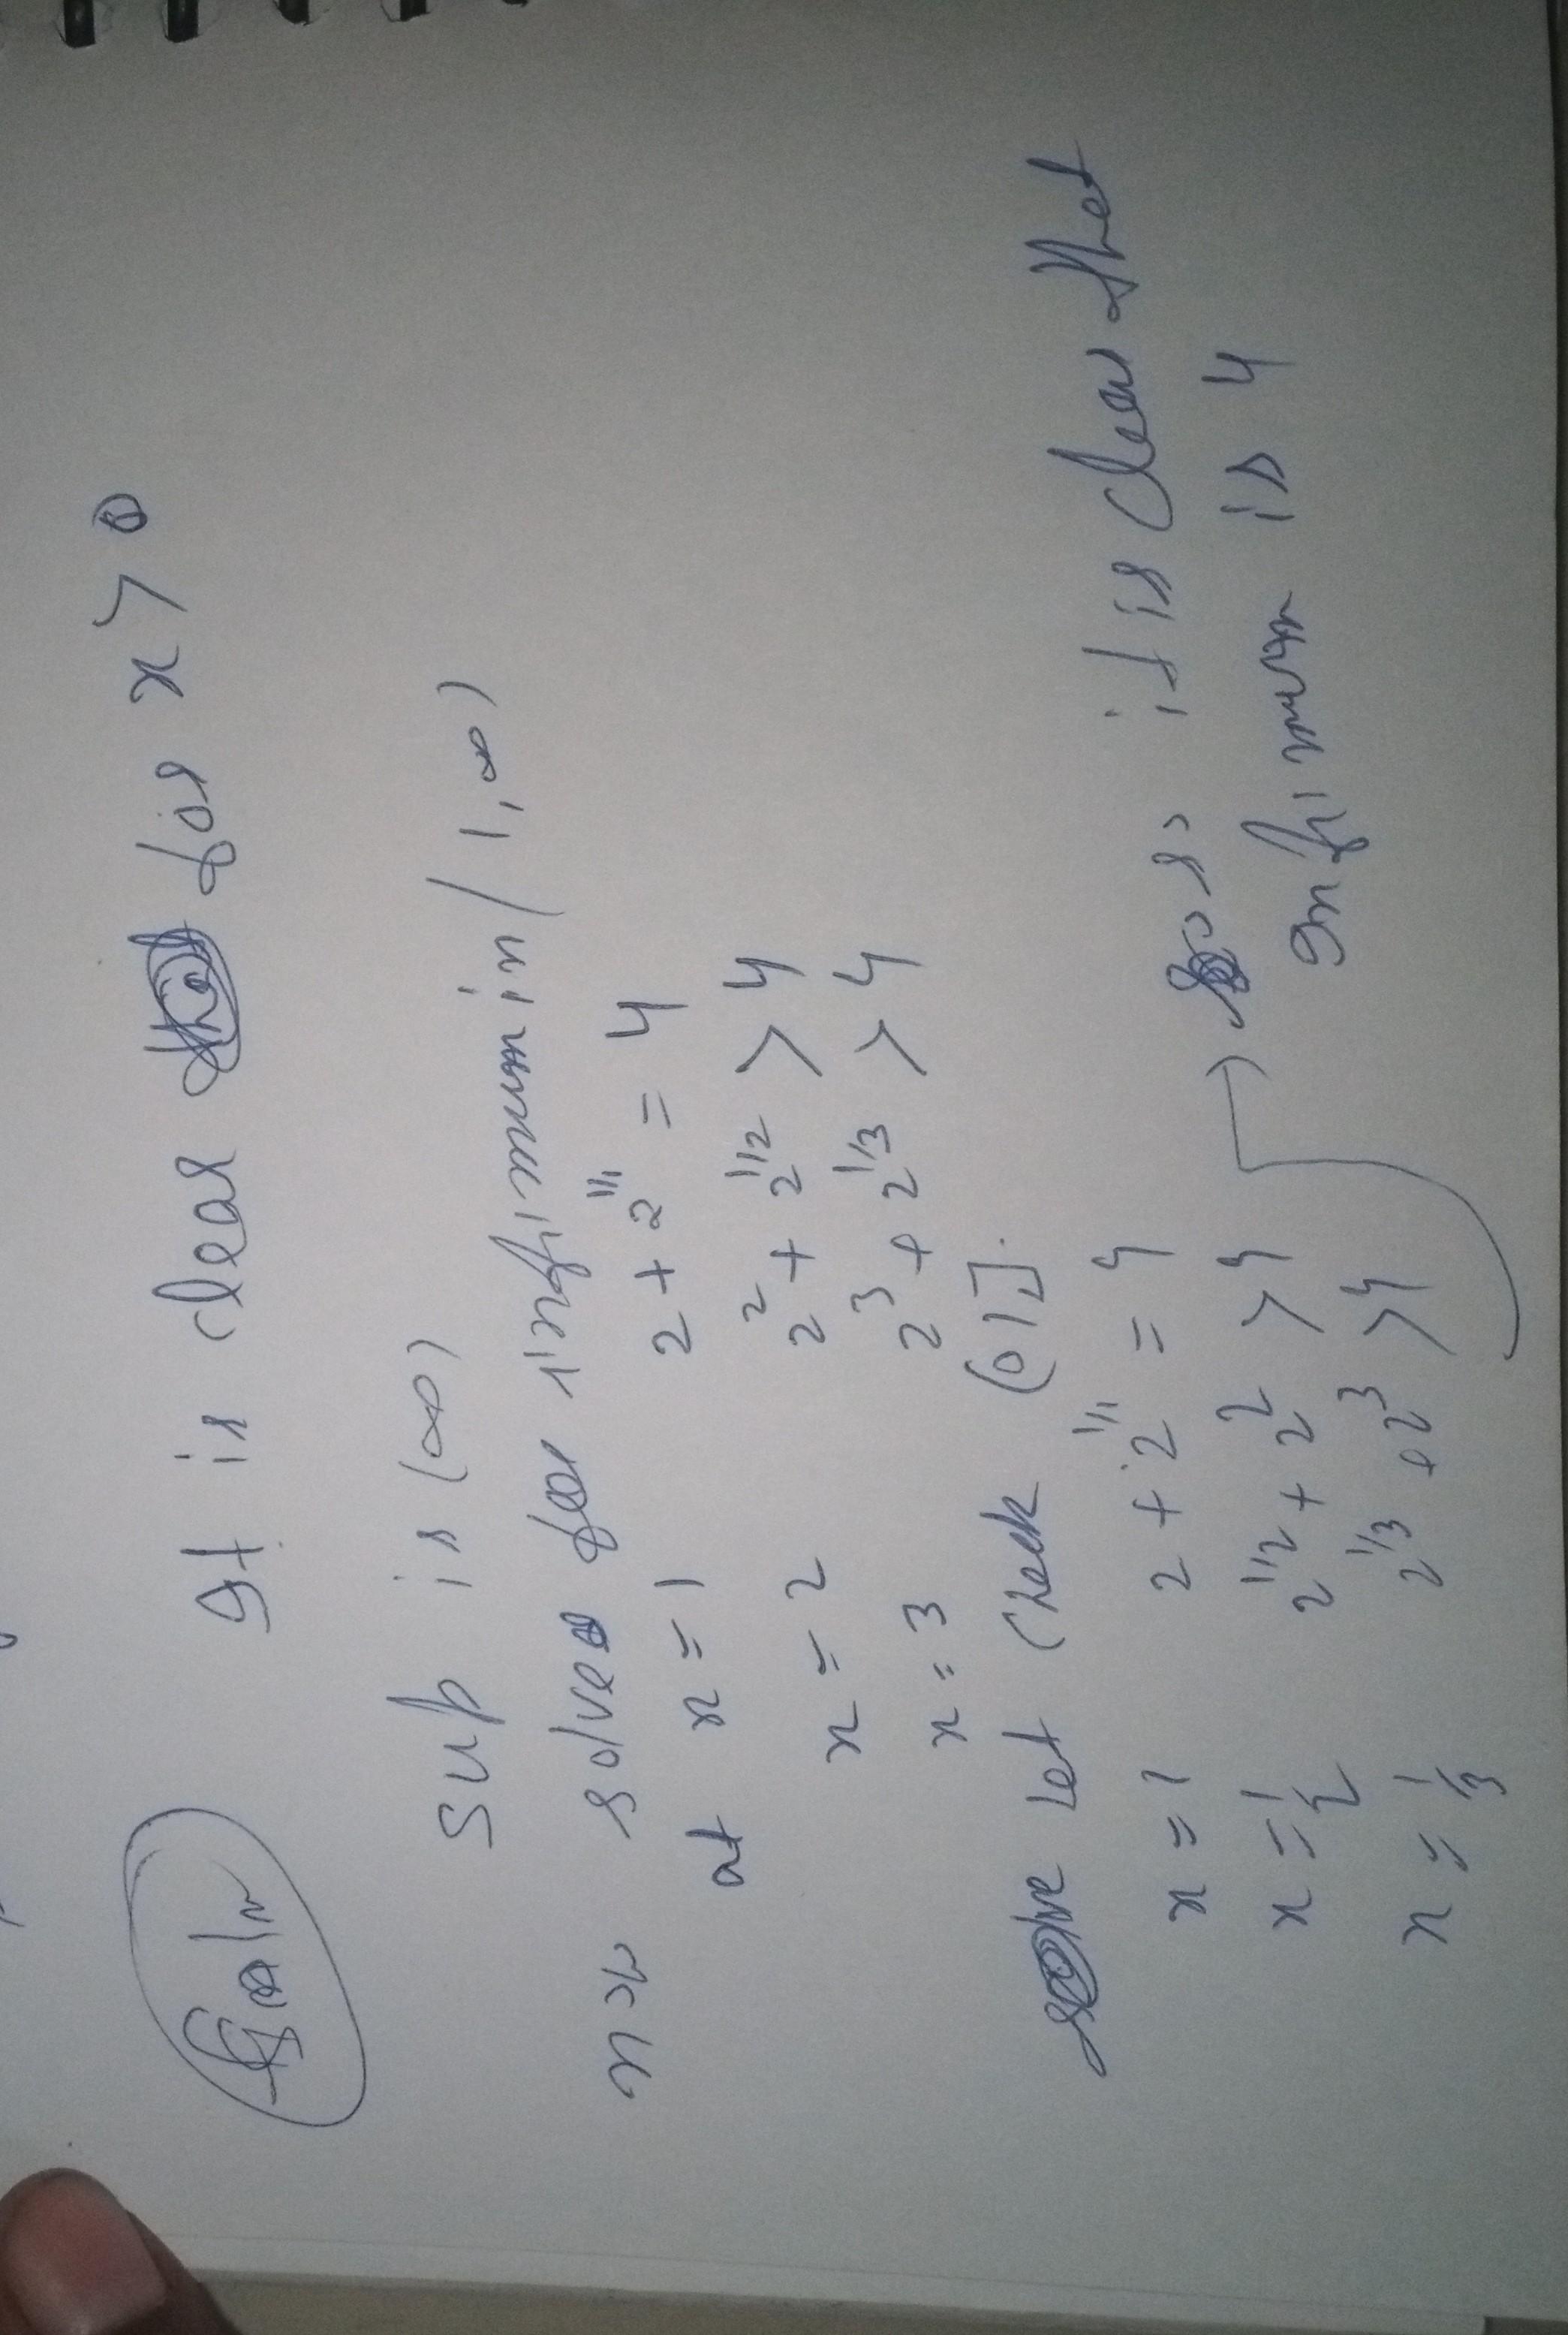 Soln
It is clear for x > 0
sup is (∞)
now solve for infimum in [1, ∞)
at x = 1 2 + 2^1/1 = 4
x = 2 2^2 + 2^1/2 > 4
x = 3 2^3 + 2^1/3 > 4
Let check (0 1].
x = 1 2 + 2^1/1 = 4
x = 1/2 2^1/2 + 2^2 > 4
x = 1/3 2^1/3 + 2^3 > 4
it is clear that
Infimum is 4